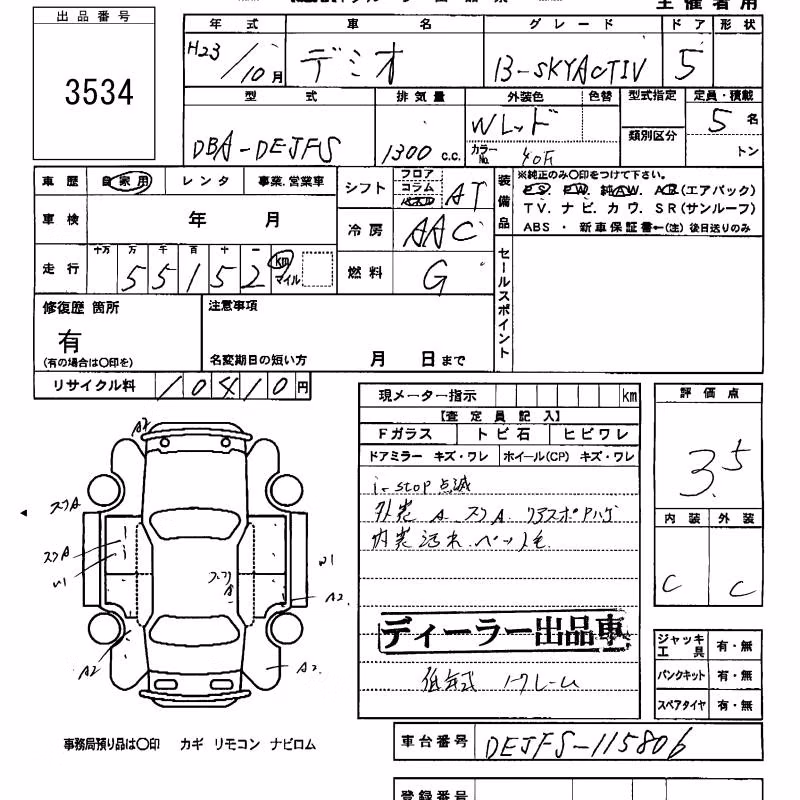 出品番号
3534
主催者用
年式 車名 グレード ドア 形状
H23/10月 デミオ 13-SKYACTIV 5
型式 排気量 外装色 色替 型式指定 定員・積載
DBA-DEJFS 1300 c.c. Wレッド 類別区分 5名
カラーNo. トン
車歴 自家用 レンタ 事業.営業車
車検 年 月
走行 十万 万 千 百 十 一
55152 km マイル
シフト フロア コラム パネル AT
冷房 AAC
燃料 G
装備品
※純正のみ○印をつけて下さい。
PS. PW. 純AW. AB(エアバック)
TV. ナビ. カワ. SR(サンルーフ)
ABS ・ 新車保証書←(注) 後日送りのみ
セールスポイント
修復歴 箇所
有
(有の場合は○印を)
注意事項
名変期日の短い方 月 日まで
リサイクル料 10410円
現メーター指示 km
【査定員記入】
Fガラス トビ石 ヒビワレ
ドアミラー キズ・ワレ ホイール(CP) キズ・ワレ
i-stop 点滅
外装 A スリA. リアスポアハゲ
内装 汚れ.ペット毛
ディーラー出品車
低年式 ノークレーム
評価点
3.5
内装 外装
C C
ジャッキ工具 有・無
パンクキット 有・無
スペアタイヤ 有・無
A2
スリA
スリA
W1
スリA
W1
A2.
A2
A2.
事務局預り品は○印 カギ リモコン ナビロム
車台番号 DEJFS-115806
登録番号